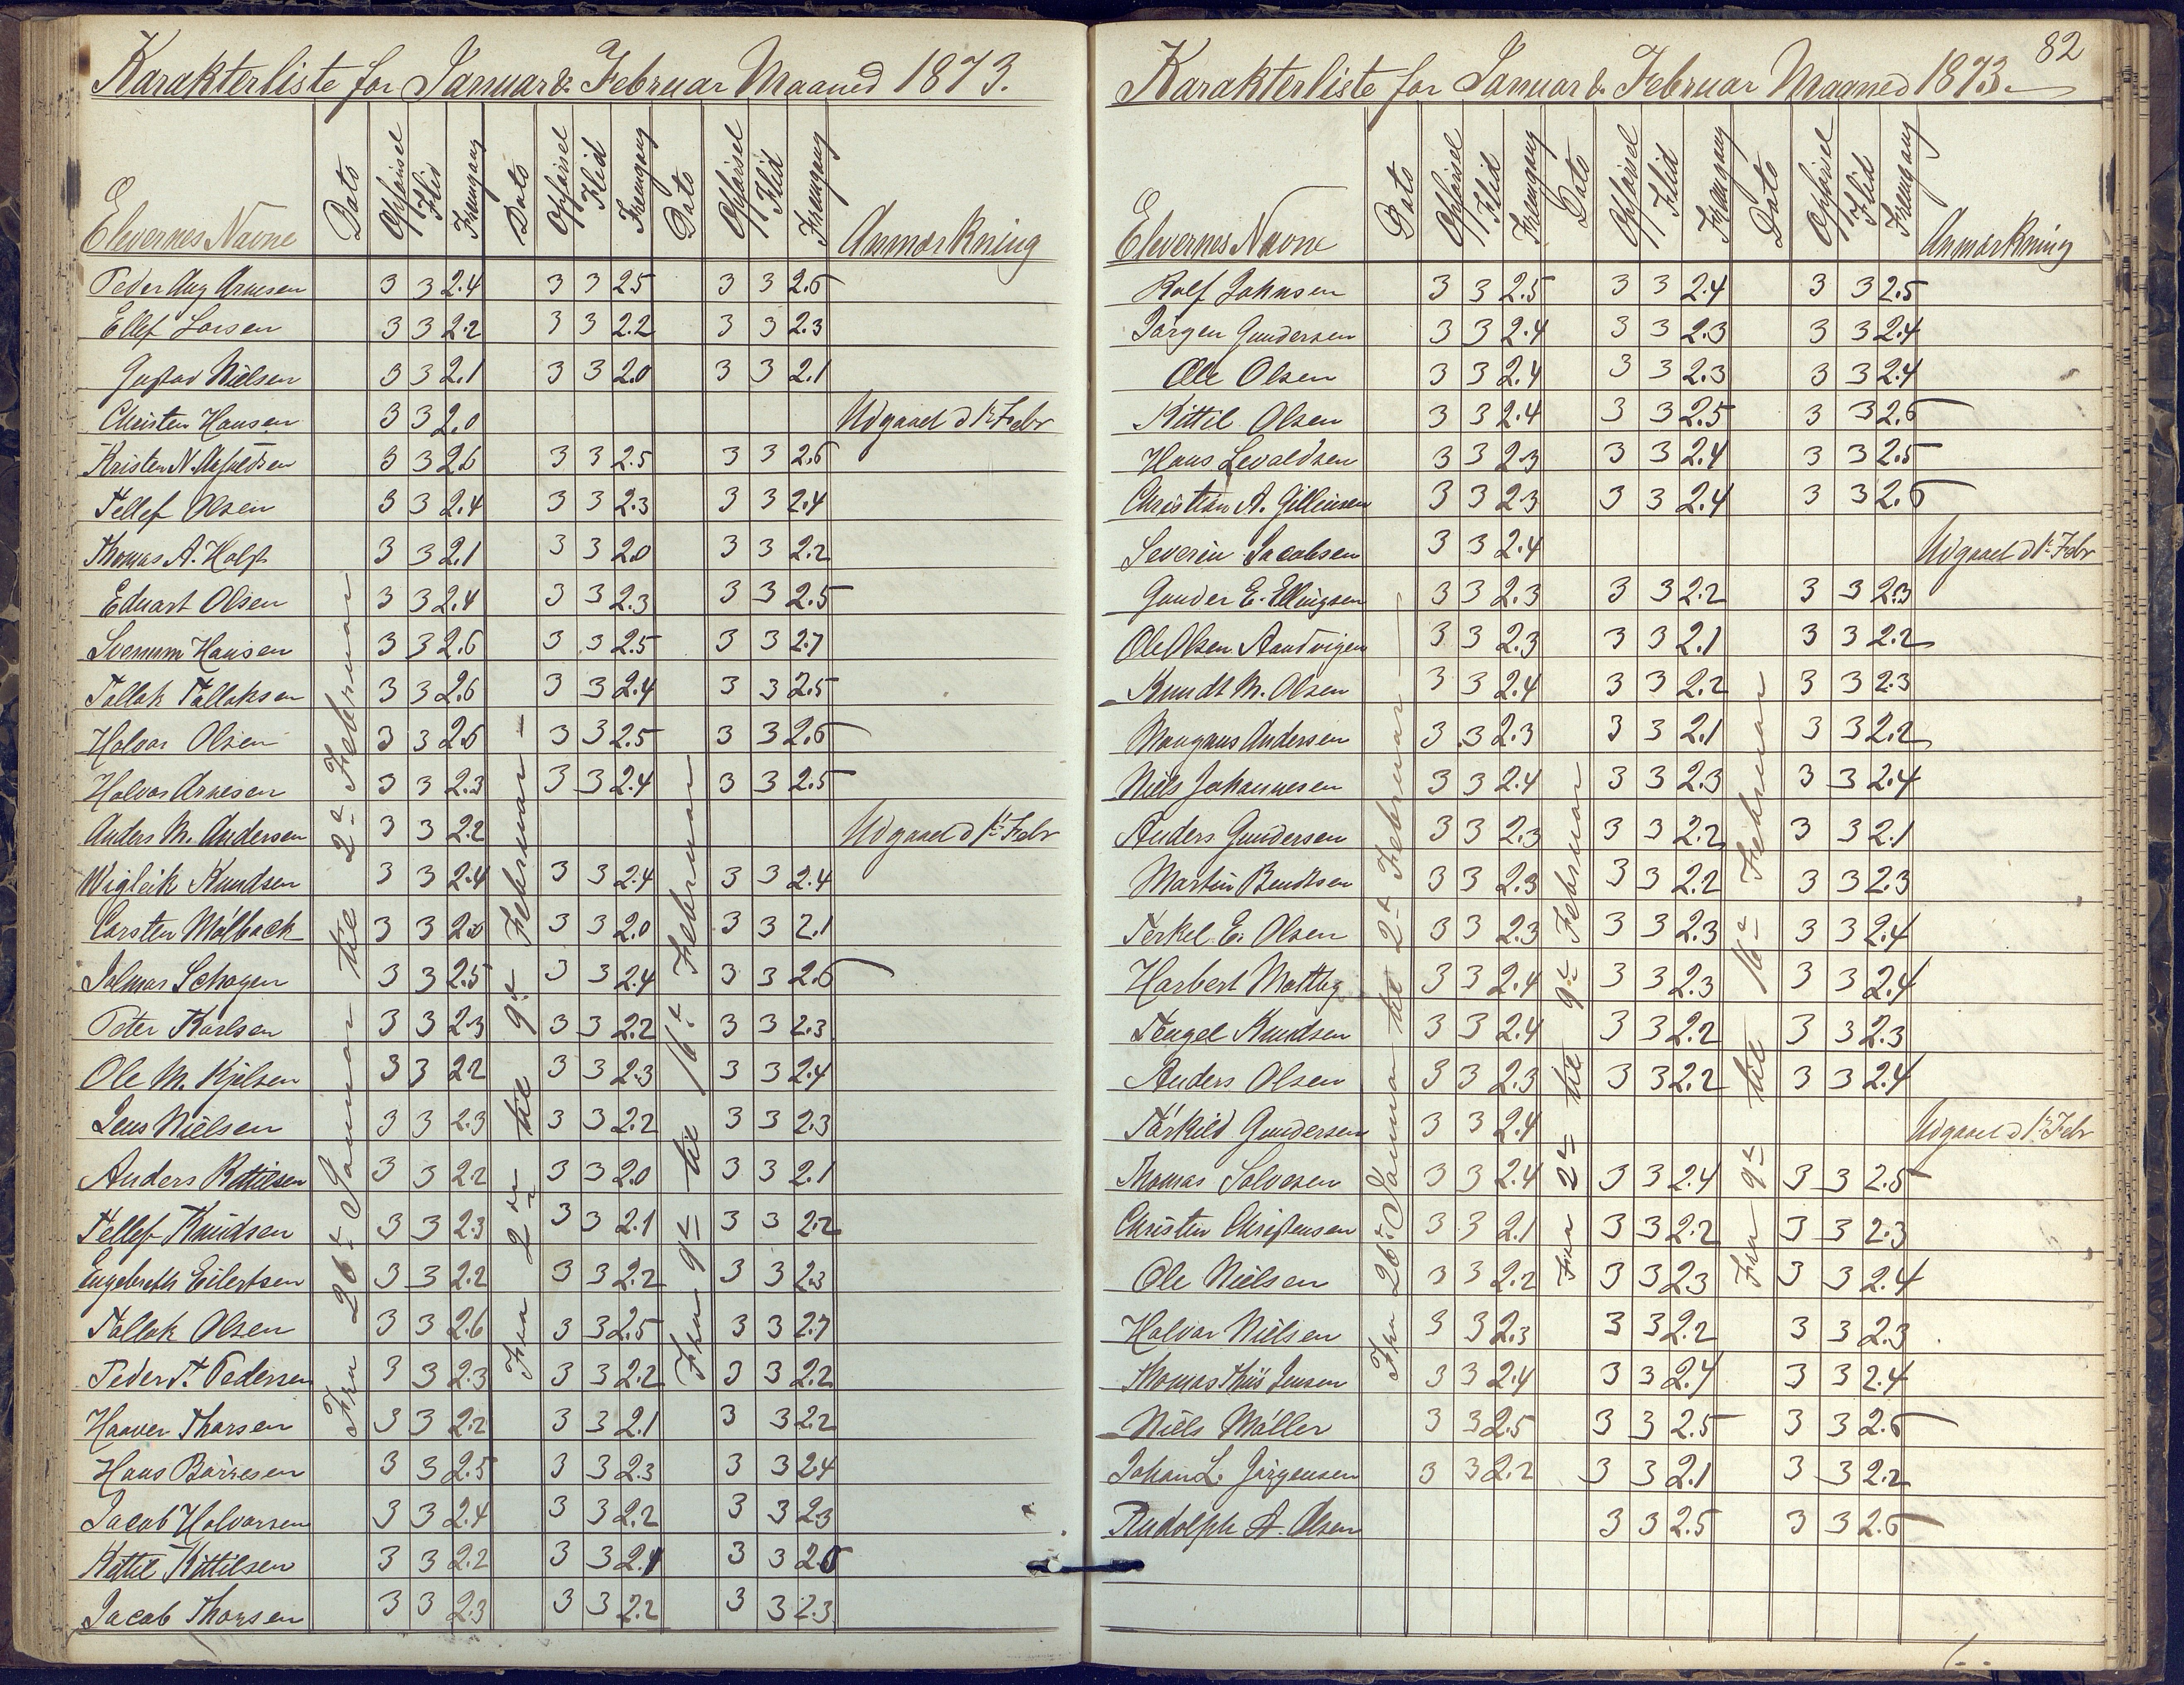 Karakterliste for Januar & Februar Maaned 1873.
Elevernes Navne Dato Opførsel Flid Fremgang Dato Opførsel Flid Fremgang Dato Opførsel Flid Fremgang Anmærkning
Fra 26de Januar til 2de Februar
Fra 2den til 9de Februar
Fra 9de til 16de Februar
Peder Aug Arnesen 3 3 2.4 3 3 2.5 3 3 2.6
Ellef Larsen 3 3 2.2 3 3 2.2 3 3 2.3
Gustav Nielsen 3 3 2.1 3 3 2.0 3 3 2.1
Christen Hansen 3 3 2.0 Udgaaet d 1ste Febr
Kristen N. 3 3 2.6 3 3 2.5 3 3 2.6
Tellef Olsen 3 3 2.4 3 3 2.3 3 3 2.4
Thomas A. Holst 3 3 2.1 3 3 2.0 3 3 2.2
Eduart Olsen 3 3 2.4 3 3 2.3 3 3 2.5
Svenum Hansen 3 3 2.6 3 3 2.5 3 3 2.7
Tallak Tallaksen 3 3 2.6 3 3 2.4 3 3 2.5
Halvor Olsen 3 3 2.6 3 3 2.5 3 3 2.6
Halvor Arnesen 3 3 2.3 3 3 2.4 3 3 2.5
Anders M. Andersen 3 3 2.2 Udgaaet d 1ste Febr
Wigleik Knudsen 3 3 2.4 3 3 2.4 3 3 2.4
Carsten Mølback 3 3 2.0 3 3 2.0 3 3 2.1
Jalmar Schagen 3 3 2.5 3 3 2.4 3 3 2.6
Peter Karlsen 3 3 2.3 3 3 2.2 3 3 2.3
Ole M. Kjelsen 3 3 2.2 3 3 2.3 3 3 2.4
Jens Nielsen 3 3 2.3 3 3 2.2 3 3 2.3
Anders Kittilsen 3 3 2.2 3 3 2.0 3 3 2.1
Tellef Knudsen 3 3 2.3 3 3 2.1 3 3 2.2
Engebreth Eilertsen 3 3 2.2 3 3 2.2 3 3 2.3
Tallak Olsen 3 3 2.6 3 3 2.5 3 3 2.7
Peder T. Pedersen 3 3 2.3 3 3 2.2 3 3 2.2
Haaver Thorsen 3 3 2.2 3 3 2.1 3 3 2.2
Hans Børresen 3 3 2.5 3 3 2.3 3 3 2.4
Jacob Halvorsen 3 3 2.4 3 3 2.2 3 3 2.3
Kittil Kittilsen 3 3 2.2 3 3 2.1 3 3 2.0
Jacob Thorsen 3 3 2.3 3 3 2.2 3 3 2.3
82
Karakterliste for Januar & Februar Maaned 1873.
Elevernes Navne Dato Opførsel Flid Fremgang Dato Opførsel Flid Fremgang Dato Opførsel Flid Fremgang Anmærkning
Fra 26de Januar til 2de Februar
Fra 2de til 9de Februar
Fra 9de til 16de Februar
Rolf Johnsen 3 3 2.5 3 3 2.4 3 3 2.5
Jørgen Gundersen 3 3 2.4 3 3 2.3 3 3 2.4
Ole Olsen 3 3 2.4 3 3 2.3 3 3 2.4
Kittil Olsen 3 3 2.4 3 3 2.5 3 3 2.6
Hans Levaldsen 3 3 2.3 3 3 2.4 3 3 2.5
Christian A. 3 3 2.3 3 3 2.4 3 3 2.5
Severin Jacobsen 3 3 2.4 Udgaaet d 1ste Febr
Gunder E. Ellingsen 3 3 2.3 3 3 2.2 3 3 2.3
Ole Olsen Aandvigen 3 3 2.3 3 3 2.1 3 3 2.2
Knudt M. Olsen 3 3 2.4 3 3 2.2 3 3 2.3
Mangnus Andersen 3 3 2.3 3 3 2.1 3 3 2.2
Niels Johannesen 3 3 2.4 3 3 2.3 3 3 2.4
Anders Gundersen 3 3 2.3 3 3 2.2 3 3 2.1
Martin Bendtsen 3 3 2.3 3 3 2.2 3 3 2.3
Terkel E. Olsen 3 3 2.3 3 3 2.3 3 3 2.4
Harbert 3 3 2.4 3 3 2.3 3 3 2.4
Tengel Knudsen 3 3 2.4 3 3 2.2 3 3 2.3
Anders Olsen 3 3 2.3 3 3 2.2 3 3 2.4
Tørkild Gundersen 3 3 2.4 Udgaaet d 1ste Febr
Thomas Salvesen 3 3 2.4 3 3 2.4 3 3 2.5
Christen Christensen 3 3 2.1 3 3 2.2 3 3 2.3
Ole Nielsen 3 3 2.2 3 3 2.3 3 3 2.4
Halvor Nielsen 3 3 2.3 3 3 2.2 3 3 2.3
Thomas Thiis Jensen 3 3 2.4 3 3 2.4 3 3 2.4
Niels Møller 3 3 2.5 3 3 2.5 3 3 2.6
Johan L. Jørgensen 3 3 2.2 3 3 2.1 3 3 2.2
Rudolph A. Olsen 3 3 2.5 3 3 2.6